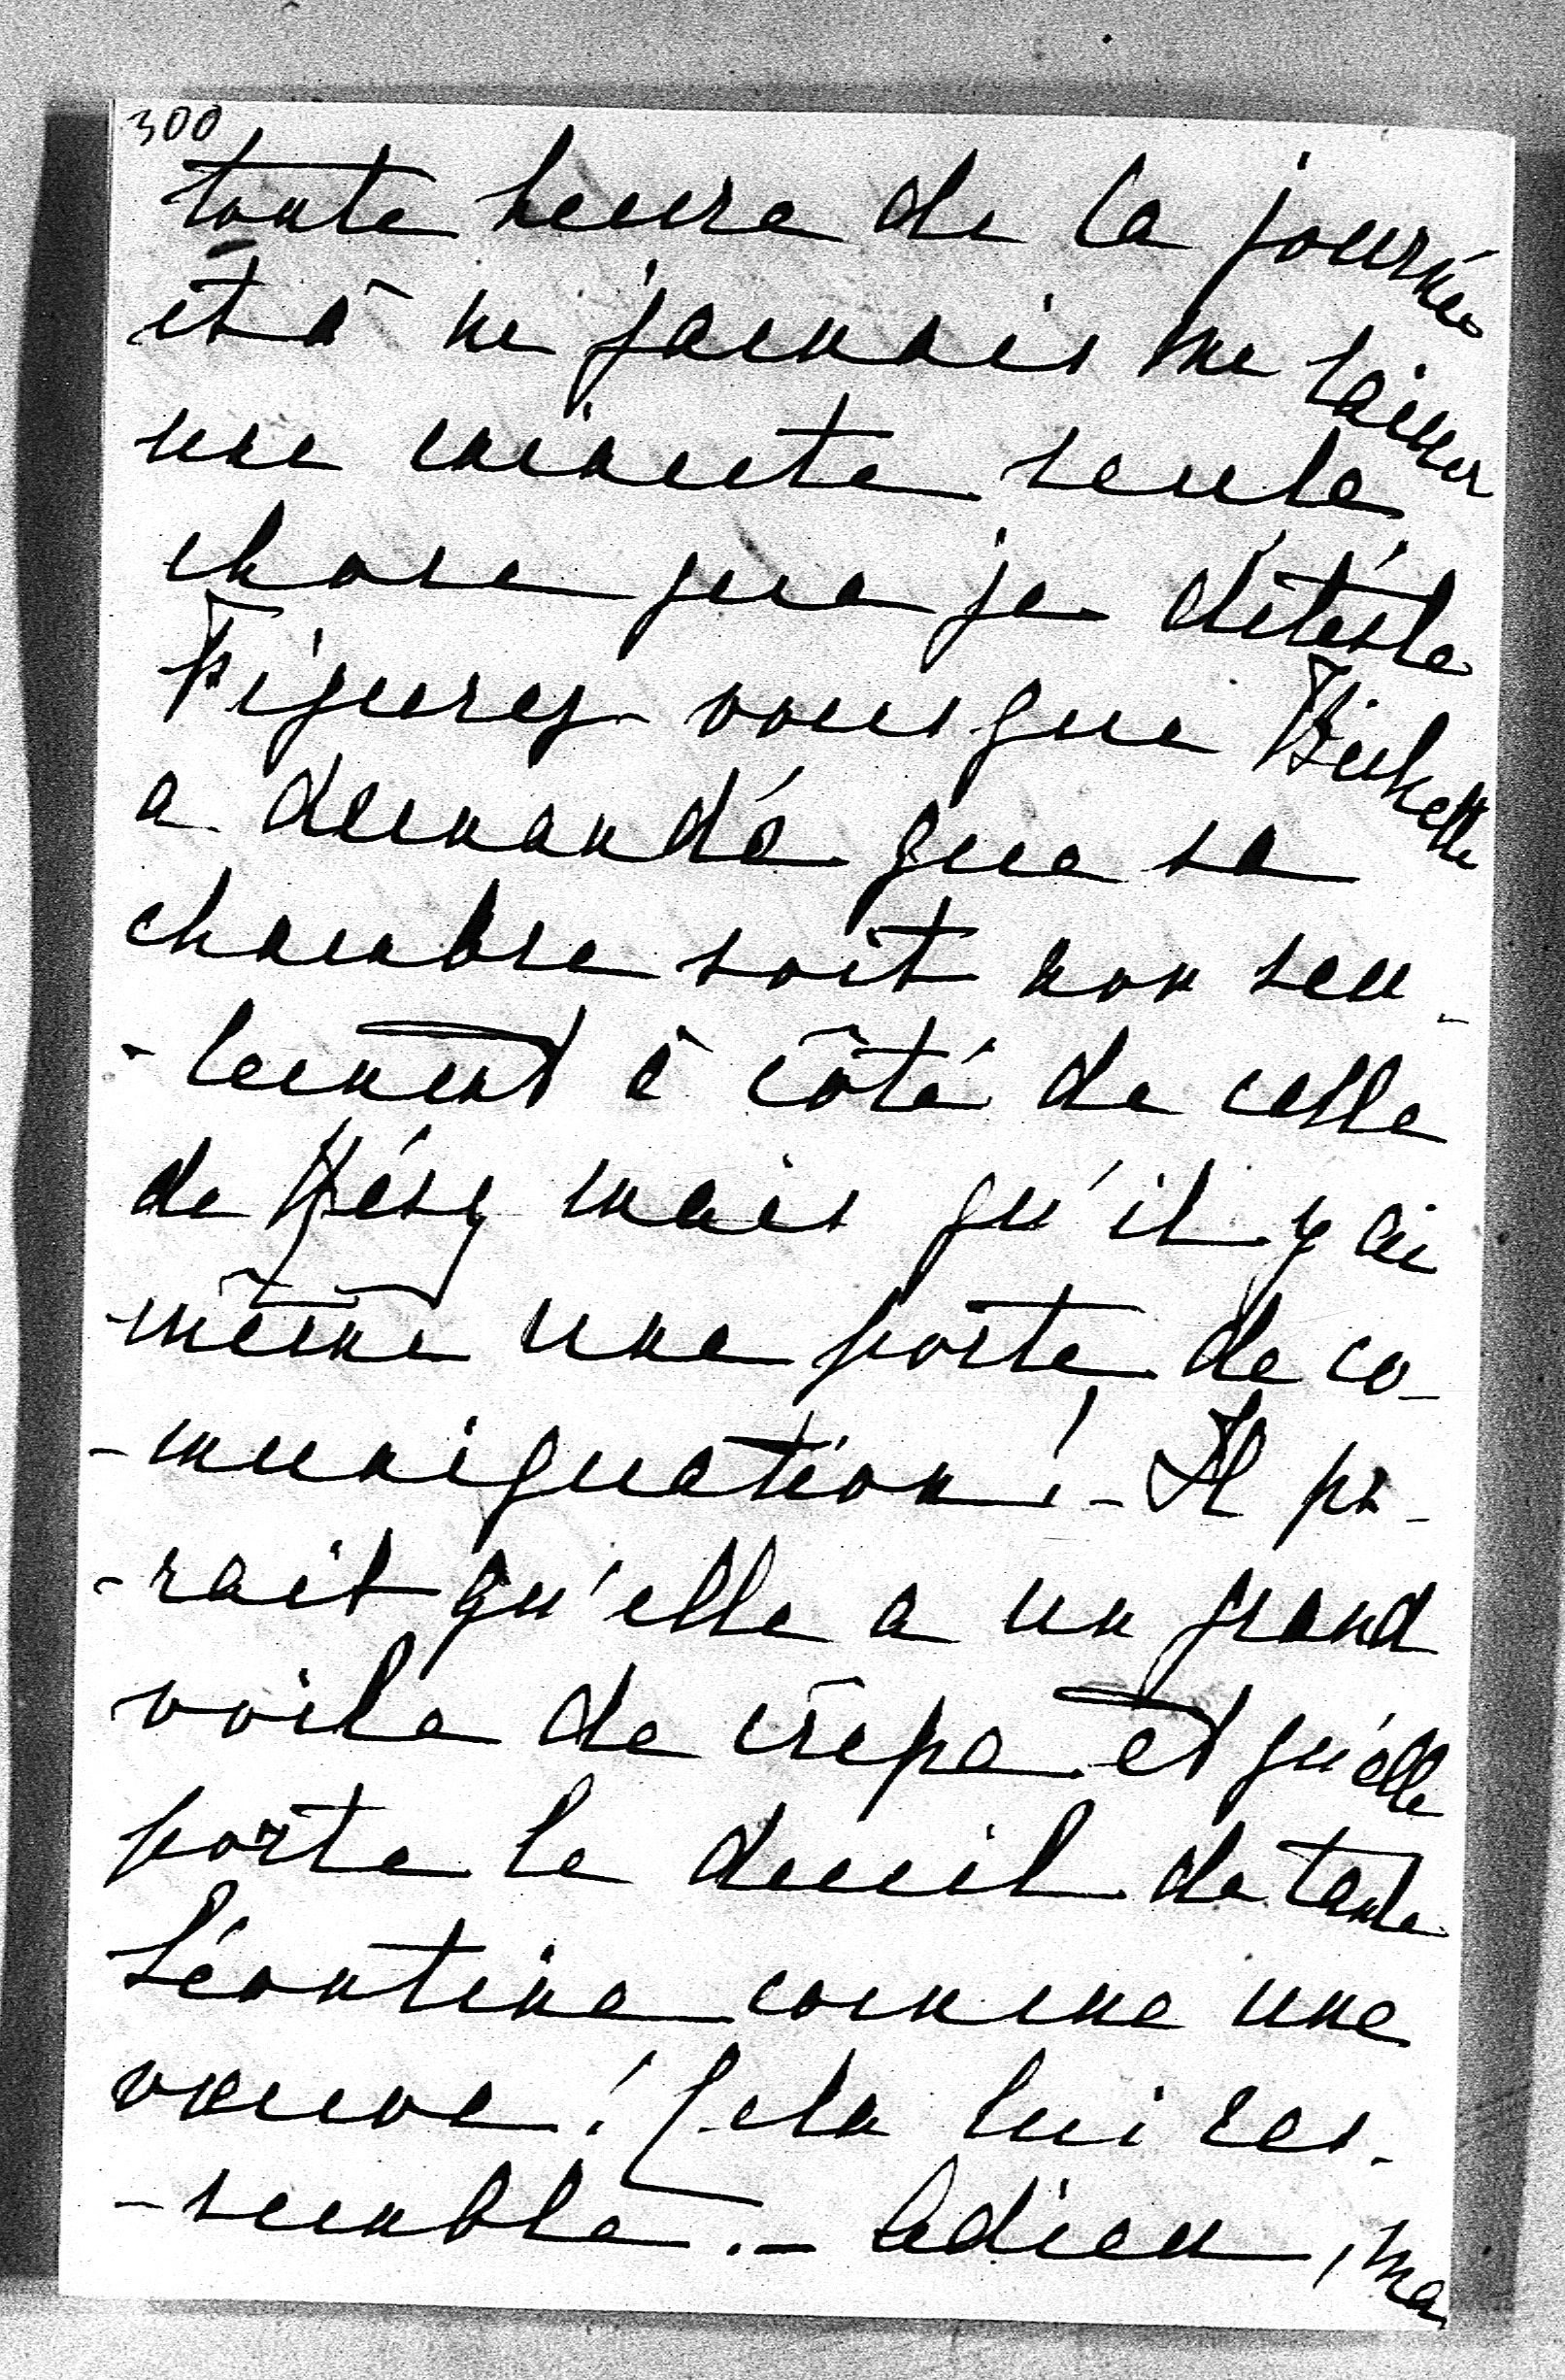 300
toute heure de la journée
et à ne jamais me laisser
une minute seule,
chose que je déteste
Figurez-vous que
a demandé que sa
chambre soit non seu-
-lement à côté de celle
de mais qu'il y ai
même une porte de co-
-muniquation! - Il pa-
-rait qu'elle a un grand
voile de crêpe et qu'elle
porte le deuil de tante
Léontine comme une
veuve! Cela lui res-
-semble. - Adieu, ma